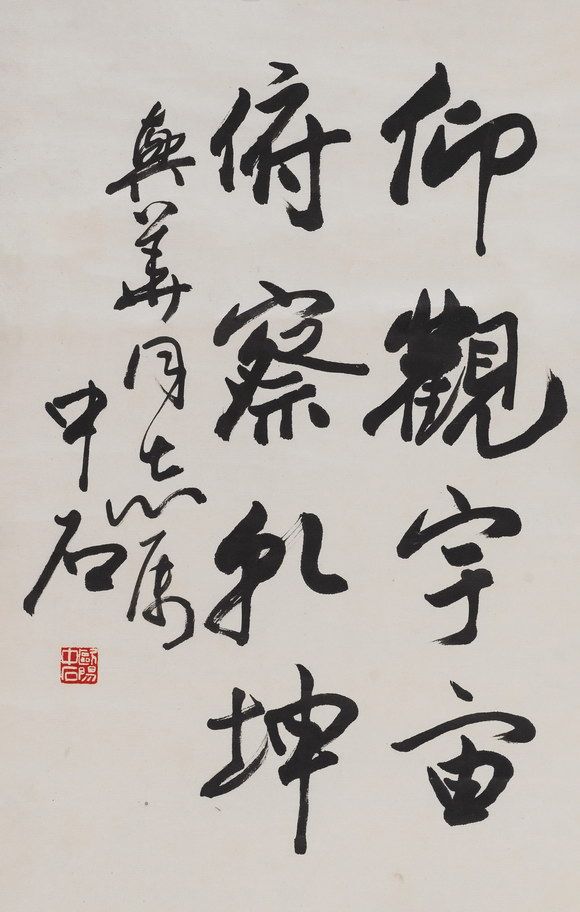 仰觀宇宙
俯察乾坤
興華同志属
中石
歐陽中石